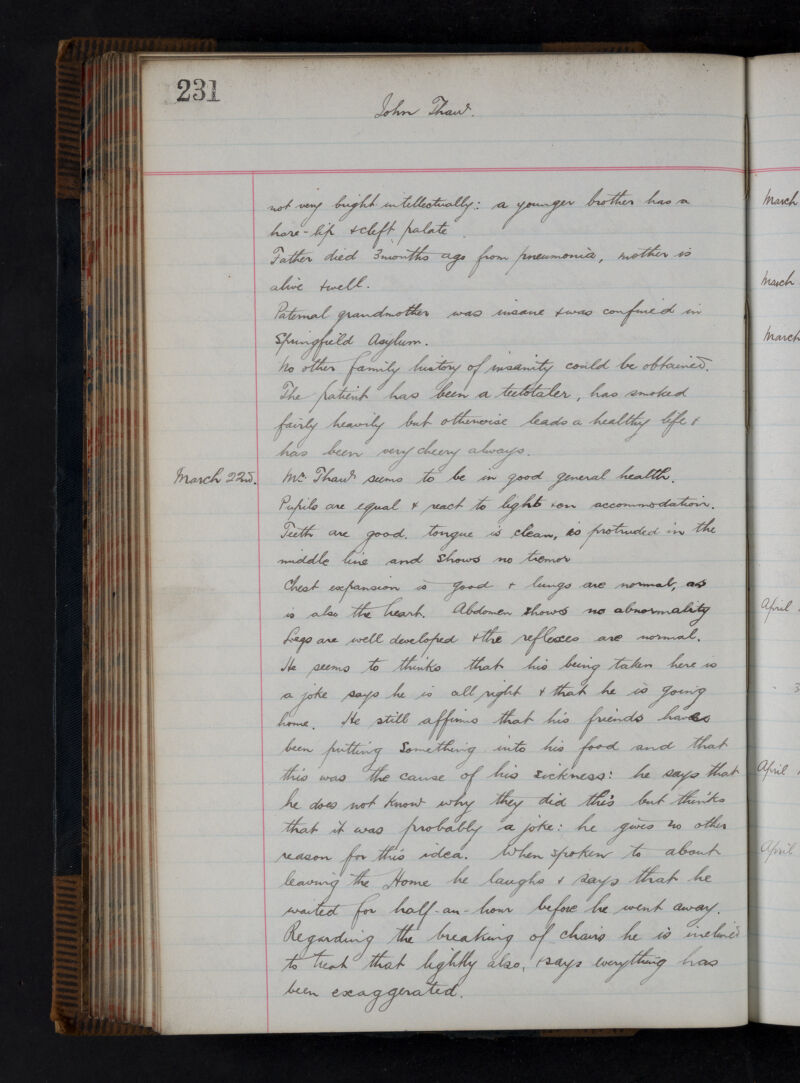 231
John Thaw.
not very bright intellectually: a younger brother has a
hare-lip & cleft palate.
Father died 3 months ago from pneumonia, mother is
alive & well.
Paternal grandmother was insane & was confined in
Springfield Asylum.
No other family history of insanity could be obtained.
The patient has been a teetotaler, has smoked
fairly heavily but otherwise leads a healthy life &
has been very cheery always.
March 22nd. Mr. Thaw seems to be in good general health.
Pupils are equal & react to light & on accommodation.
Teeth are good. tongue is clean, is protruded in the
middle line and shows no tremor
Chest expansion is good & lungs are normal, as
is also the heart. Abdomen shows no abnormality
Legs are well developed & the reflexes are normal.
He seems to thinks that his being taken here is
a joke says he is all right & that he is going
home. He still affirms that his friends have
been putting something into his food and that
this was the cause of his sickness: he says that
he does not know why they did this but thinks
that it was probably a joke: he gives no other
reason for this idea. When spoken to about
leaving the Home he laughs & says that he
waited for half-an-hour before he went away.
Regarding the breaking of chairs he is inclined
to treat that lightly also, & says everything has
been exaggerated.
March
March
March
April
3
April
April